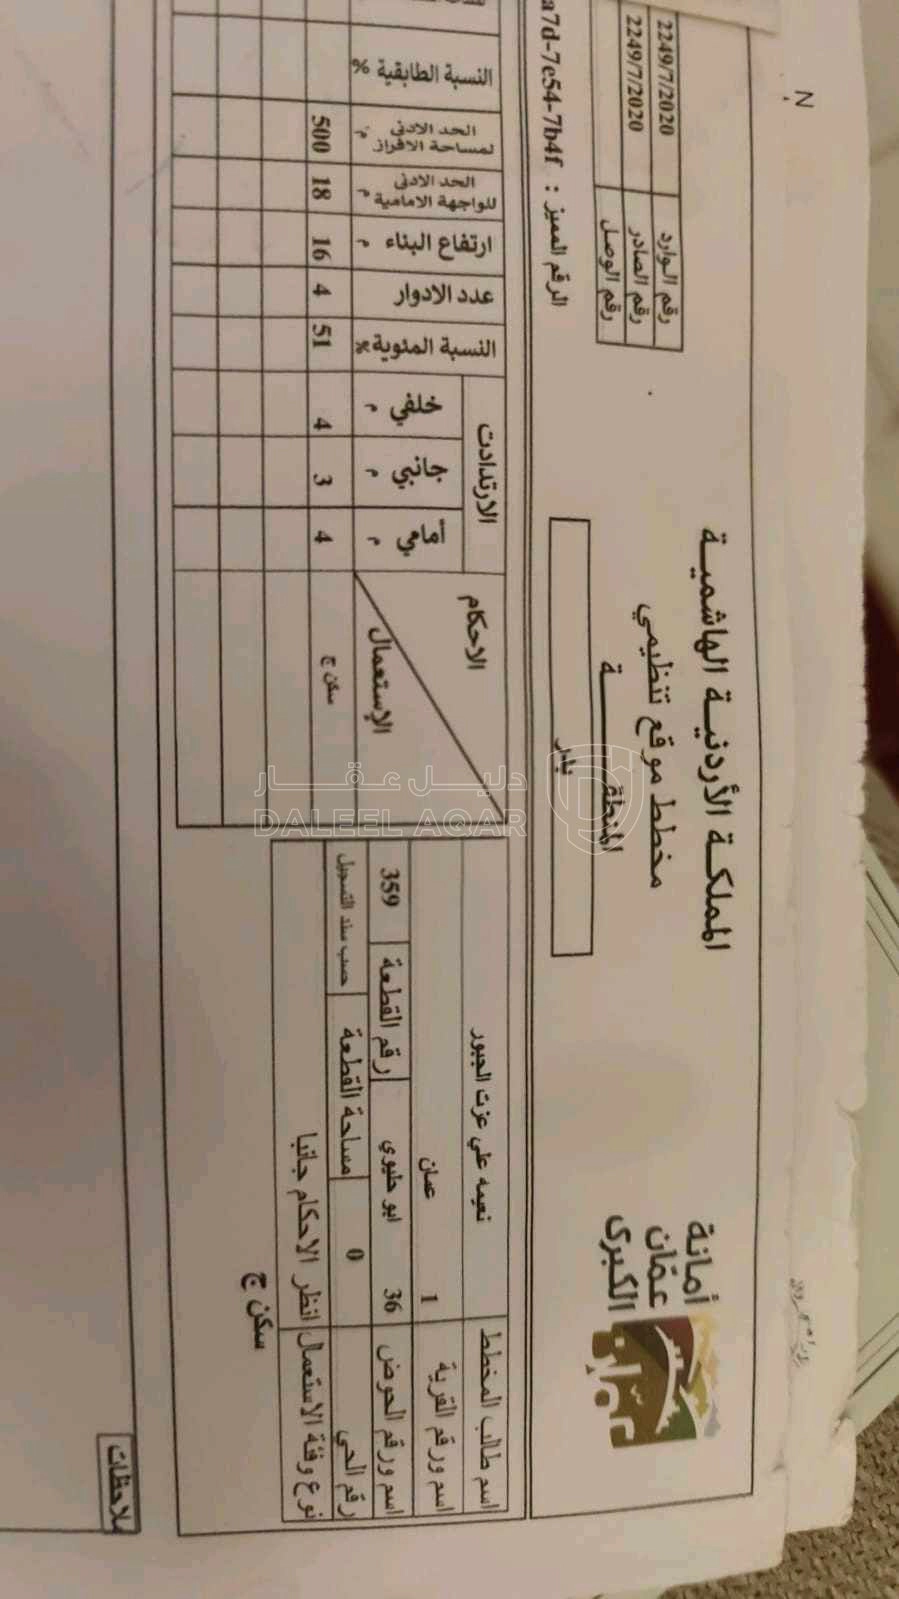 المملكة الأردنية الهاشمية
مخطط موقع تنظيمي
المنطقة
بدر
أمانة
عمّان
الكبرى
عمان
رقم الوارد 2249/7/2020
رقم الصادر 2249/7/2020
رقم الوصل
الرقم المميز : a7d-7e54-7b4f
اسم طالب المخطط نعيمه علي عزت الجبور
اسم ورقم القرية 1 عمان
اسم ورقم الحوض 36 ابو حليوي رقم القطعة 359
رقم الحي 0 مساحة القطعة حسب سند التسجيل
نوع وفئة الاستعمال انظر الاحكام جانبا
سكن ج
الاحكام
الإستعمال
الارتدادت
أمامي م
جانبي م
خلفي م
النسبة المئوية %
عدد الادوار
ارتفاع البناء م
الحد الادنى للواجهة الامامية م
الحد الادنى لمساحة الافراز م
النسبة الطابقية %
سكن ج 4 3 4 51 4 16 18 500
ملاحظات
دليل عقار
DALEEL AQAR
N